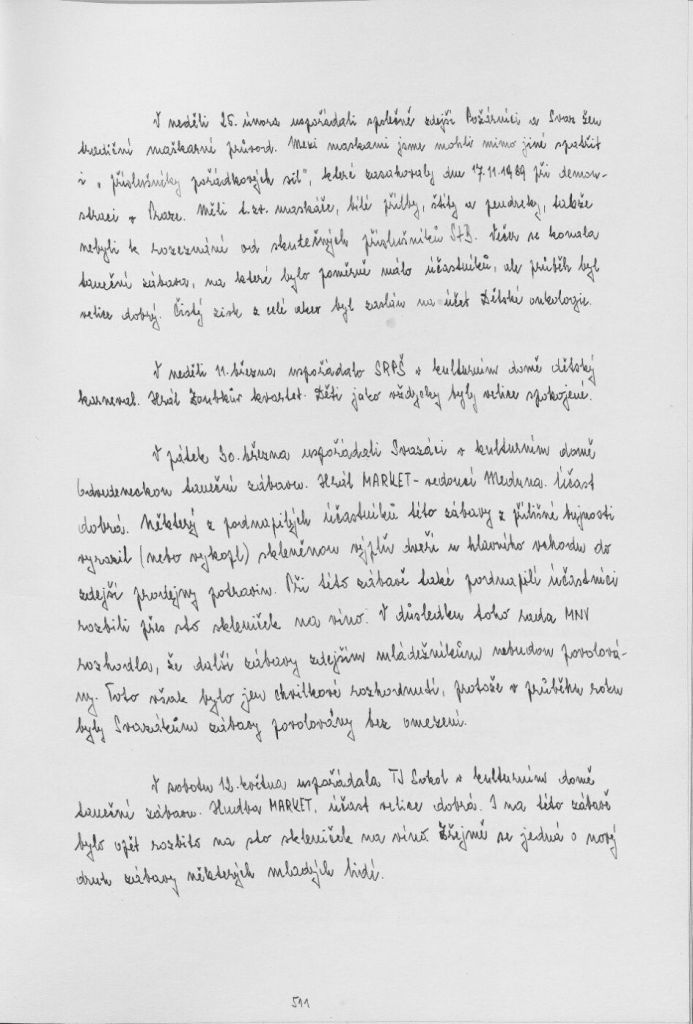 V neděli 25. února uspořádali společně zdejší Požárníci a Svaz žen
tradiční maškarní průvod. Mezi maskami jsme mohli mimo jiné spatřit
i „příslušníky pořádkových sil", které zasahovaly dne 17.11.1989 při demon-
straci v Praze. Měli t.zv. maskáče, bílé přilby, štíty a pendreky, takže
nebyli k rozeznání od skutečných příslušníků StB. Večer se konala
taneční zábava, na které bylo poměrně málo účastníků, ale průběh byl
velice dobrý. Čistý zisk z celé akce byl zaslán na účet Dětské onkologie.
V neděli 11. března uspořádalo SRPŠ v kulturním domě dětský
karneval. Hrál Zoubkův kvartet. Děti jako vždycky byly velice spokojené.
V pátek 30. března uspořádali Svazáci v kulturním domě
taneční zábavu. Hrál MARKET - vedoucí Meduna. Účast
dobrá. Některý z podnapilých účastníků této zábavy z přílišné bujnosti
vyrazil (nebo vykopl) skleněnou výplň dveří u hlavního vchodu do
zdejší prodejny potravin. Při této zábavě také podnapilí účastníci
rozbili přes sto skleniček na víno. V důsledku toho rada MNV
rozhodla, že další zábavy zdejším mládežníkům nebudou povolová-
ny. Toto však bylo jen chvilkové rozhodnutí, protože v průběhu roku
byly Svazákům zábavy povolovány bez omezení.
V sobotu 12. května uspořádala TJ Sokol v kulturním domě
taneční zábavu. Hudba MARKET, účast velice dobrá. I na této zábavě
bylo opět rozbito na sto skleniček na víno. Zřejmě se jedná o nový
druh zábavy některých mladých lidí.
511